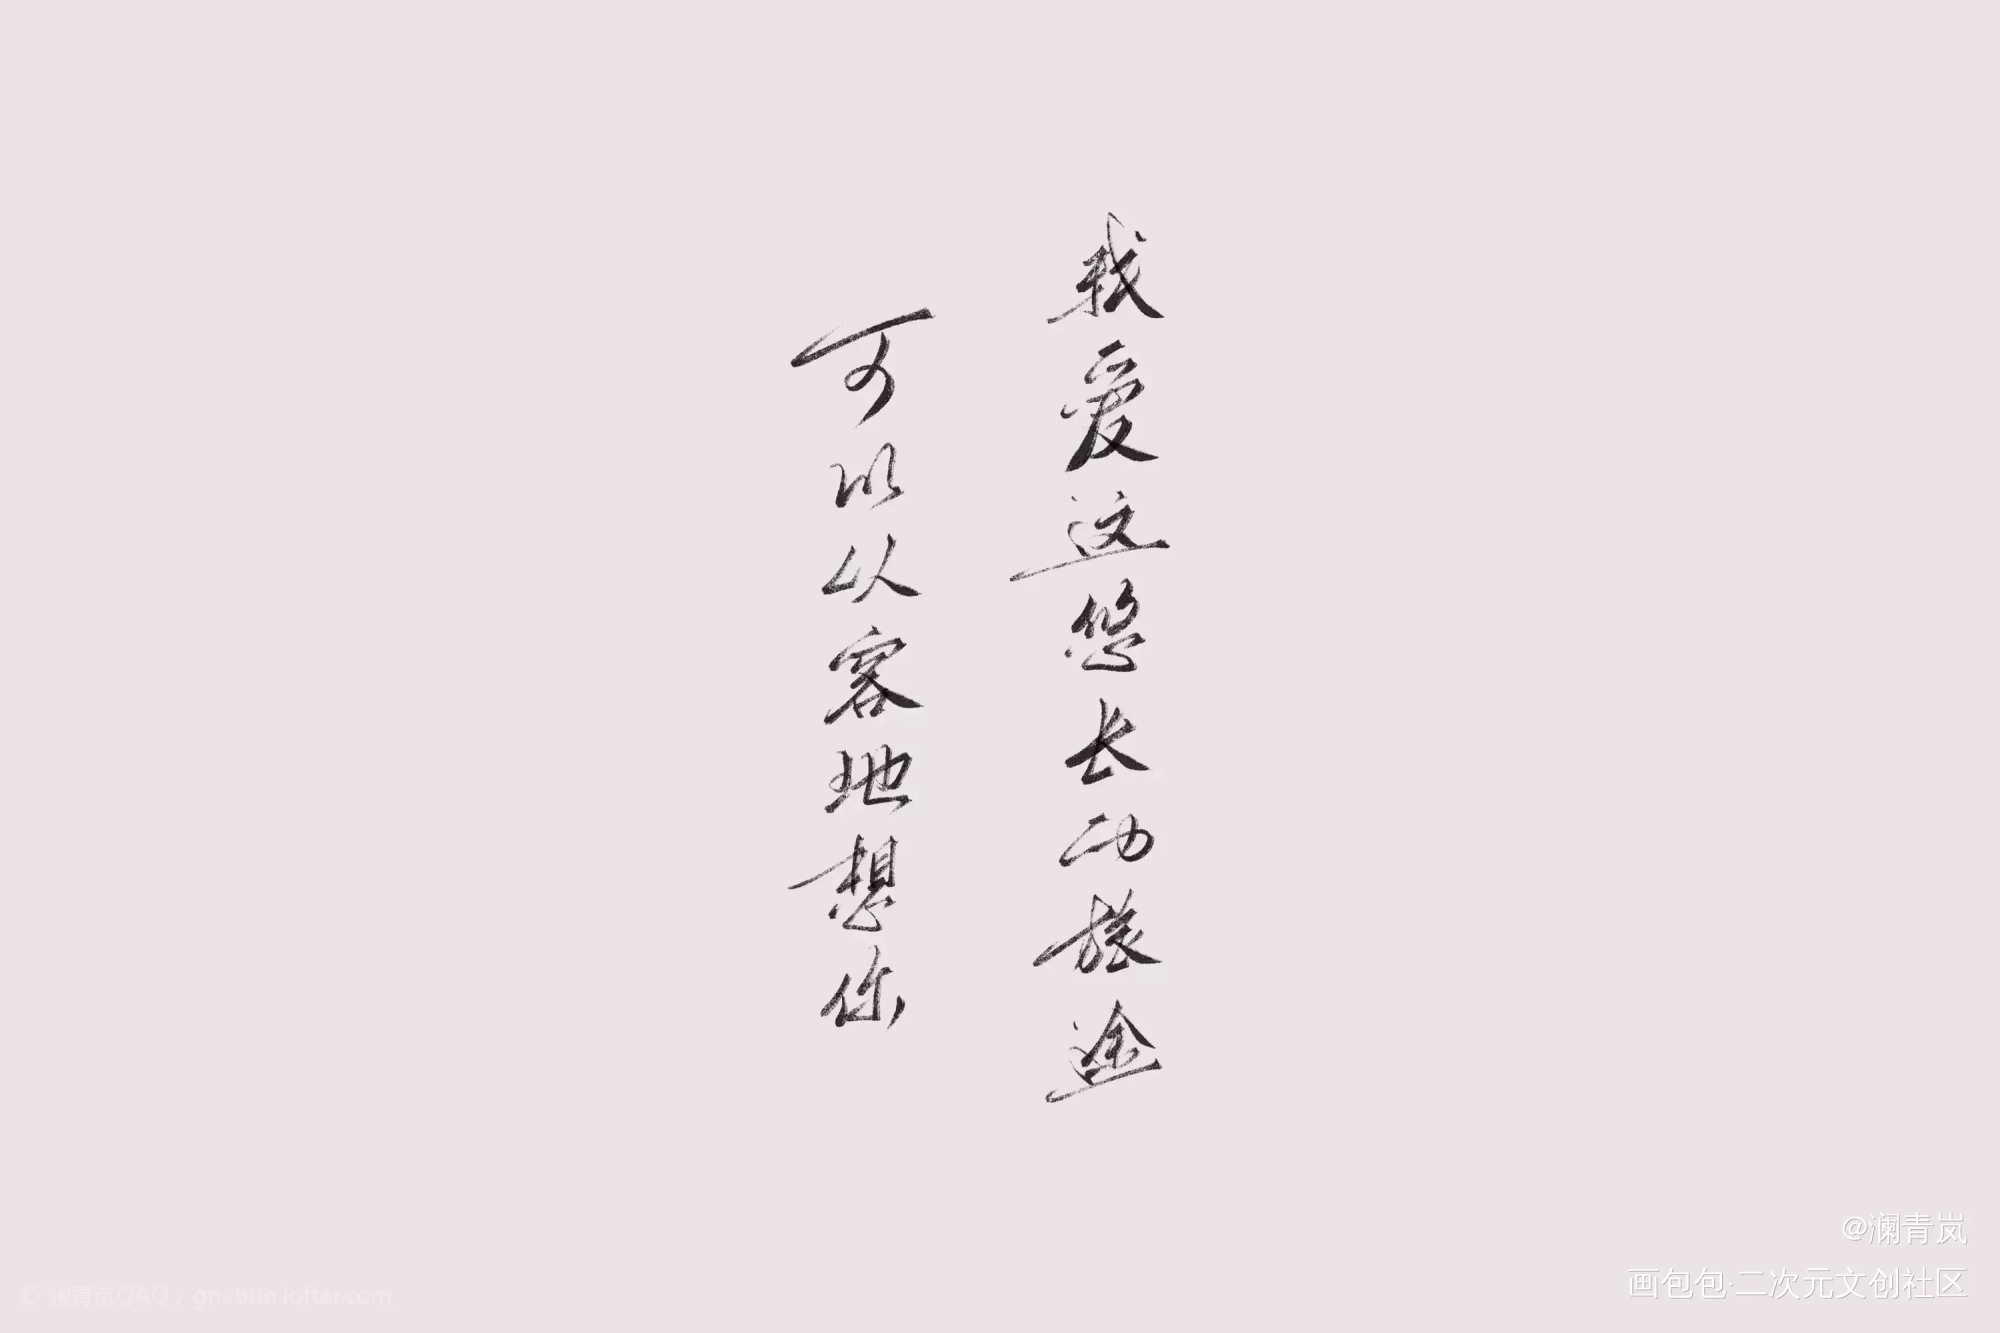 我爱这悠长的旅途
可以从客地想你
@澜青岚
画包包·二次元文创社区
© 澜青岚QAQ / gnation.lofter.com